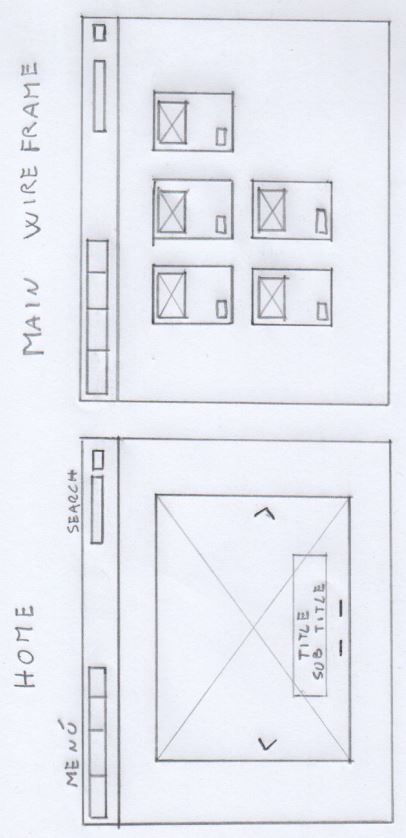 HOME
MENÚ
SEARCH
TITLE
SUB TITLE
MAIN WIRE FRAME